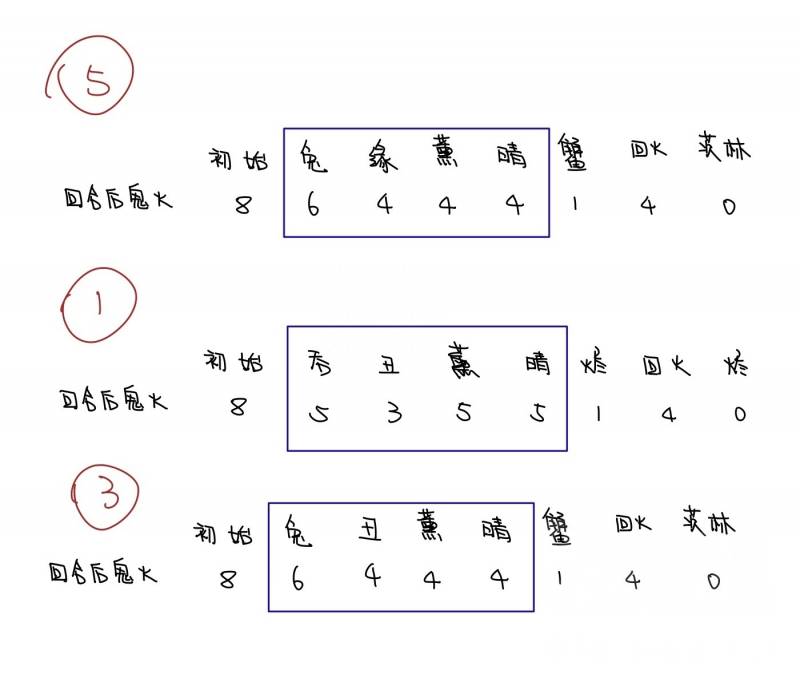 5
初始 兔 缘 薰 晴 蟹 回火 茨林
回合后鬼火 8 6 4 4 4 1 4 0
1
初始 吞 丑 薰 晴 烬 回火 烬
回合后鬼火 8 5 3 5 5 1 4 0
3
初始 兔 丑 薰 晴 蟹 回火 茨林
回合后鬼火 8 6 4 4 4 1 4 0